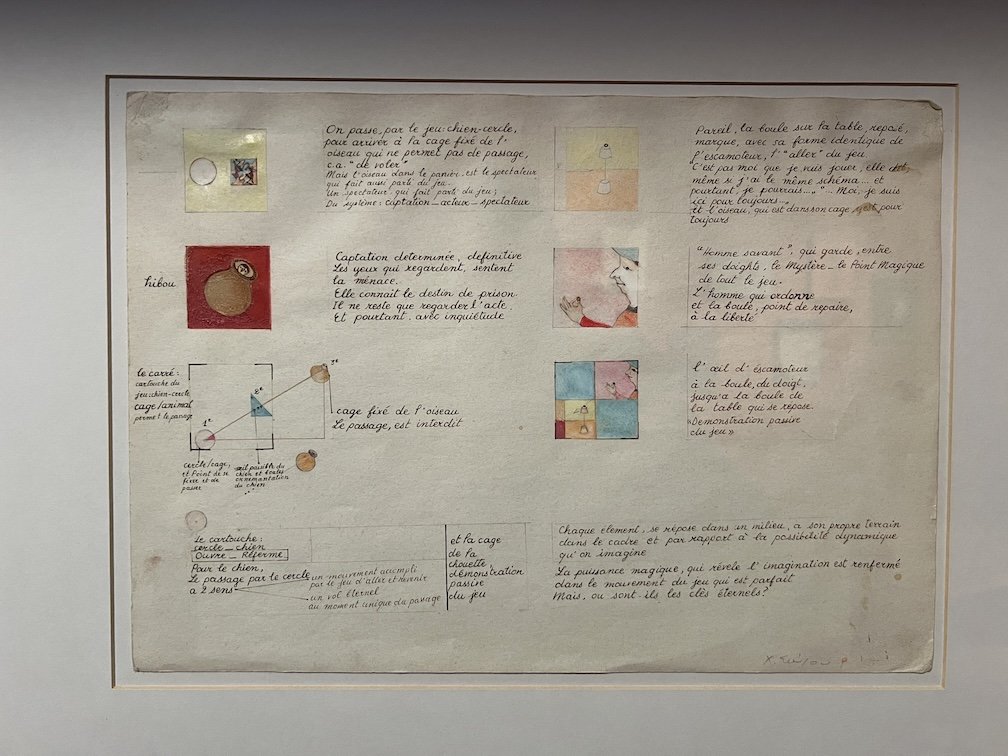 On passe, par le jeu: chien-cercle,
pour arriver à la cage fixé de l'
oiseau qui ne permet pas de passage,
c.a. "de voler"
Mais l'oiseau dans le panier, est le spectateur
qui fait aussi parti du jeu_
Un spectateur, qui fait parti du jeu;
Du système: captation_acteur_spectateur
Pareil, la boule sur la table, reposé,
marque, avec sa forme identique de
l'escamoteur, l'"aller" du jeu.
"C'est pas moi que je vais jouer, elle
même si j'ai le même schéma... et
pourtant, je pourrais..." "... Moi, je suis
ici pour toujours..."
et l'oiseau, qui est dans son cage, pour
toujours
hibou
Captation determinée, definitive
Les yeux qui regardent, sentent
la menace.
Elle connaît le destin de prison
Il ne reste que regarder l'acte.
Et pourtant, avec inquiétude
"Homme savant", qui garde, entre
ses doights, le Mystère_ le Point Magique
de tout le jeu.
L'homme qui ordonne
et la boule, point de repaire,
à la liberté
le carré:
cartouche du
jeu: chien-cercle
cage/animal
permet le passage
1e
2e
3e
cage fixé de l'oiseau
Le passage, est interdit
cercle/cage,
et Point de se
fixer et de
passer
œil paisible du
chien et toutes
ornemantation
du chien
...
l'œil d'éscamoteur
à la boule, du doigt,
jusqu'a la boule de
la table qui se repose.
«Demonstration passire
du jeu»
Le cartouche:
cercle_chien
Ouvre_Réferme
Pour le chien,
Le passage par le cercle
a 2 sens
un mouvement accompli
par le jeu d'aller et revenir
un vol éternel
au moment unique du passage
et la cage
de la
chouette,
démonstration
passire
du jeu
Chaque élement, se repose dans un milieu, a son propre terrain
dans le cadre et par rapport à la possibilité dynamique
qu'on imagine
La puissance magique, qui révele l'imagination est renfermé
dans le mouvement du jeu qui est parfait
Mais, ou sont-ils les clès éternels?